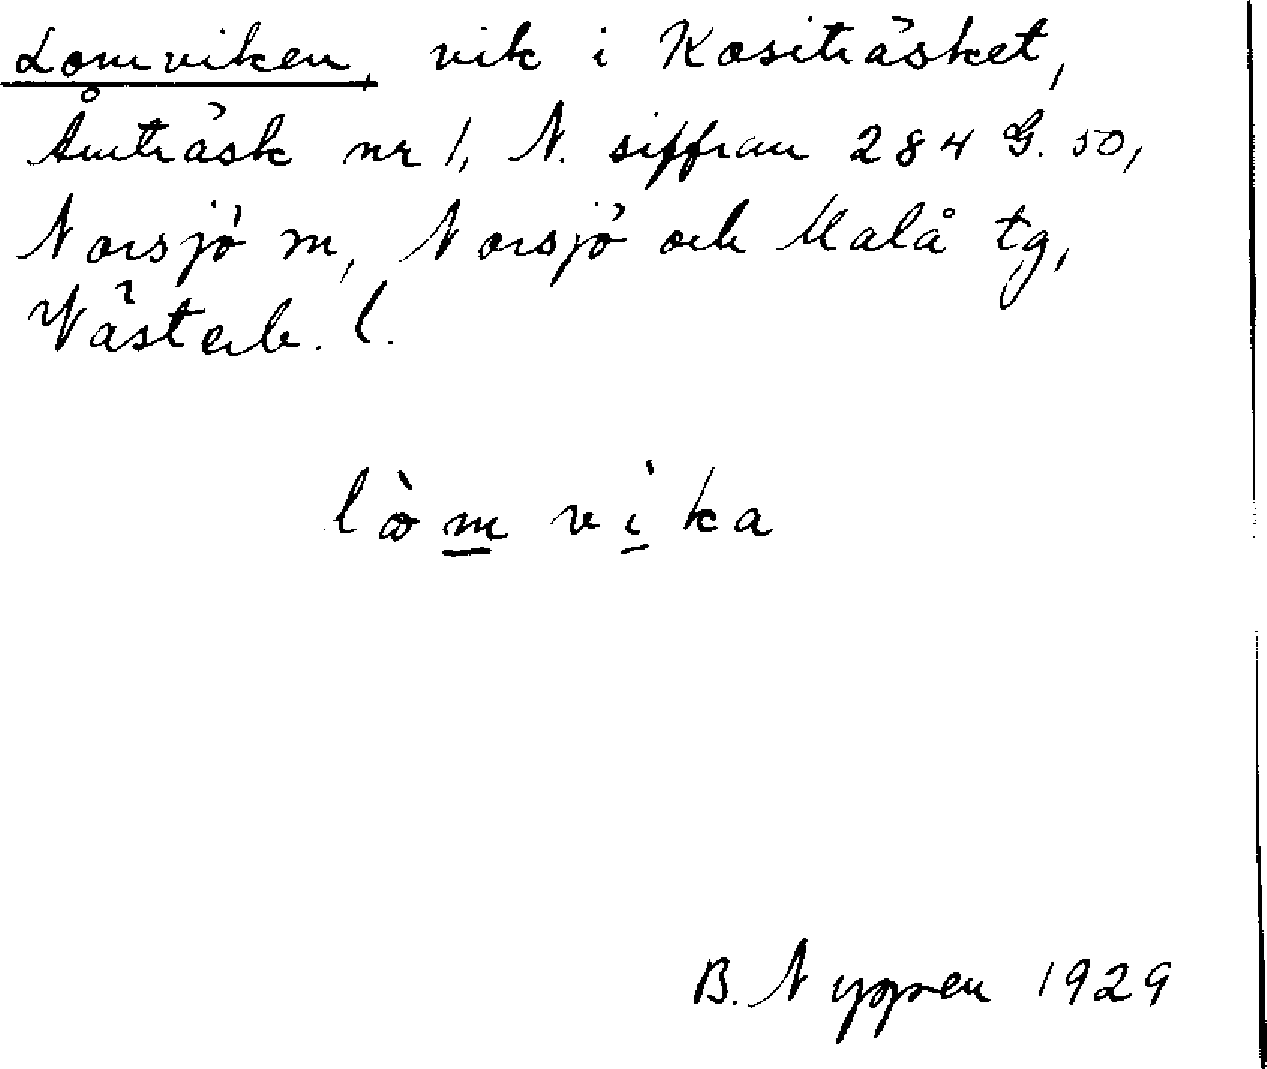 Lomviken, vik i Kositräsket,
Åmträsk nr 1, N. siffran 284 G. 50,
Norsjö m, Norsjö och Malå tg,
Västerb. l.
lòm vìka
B. Nygren 1929